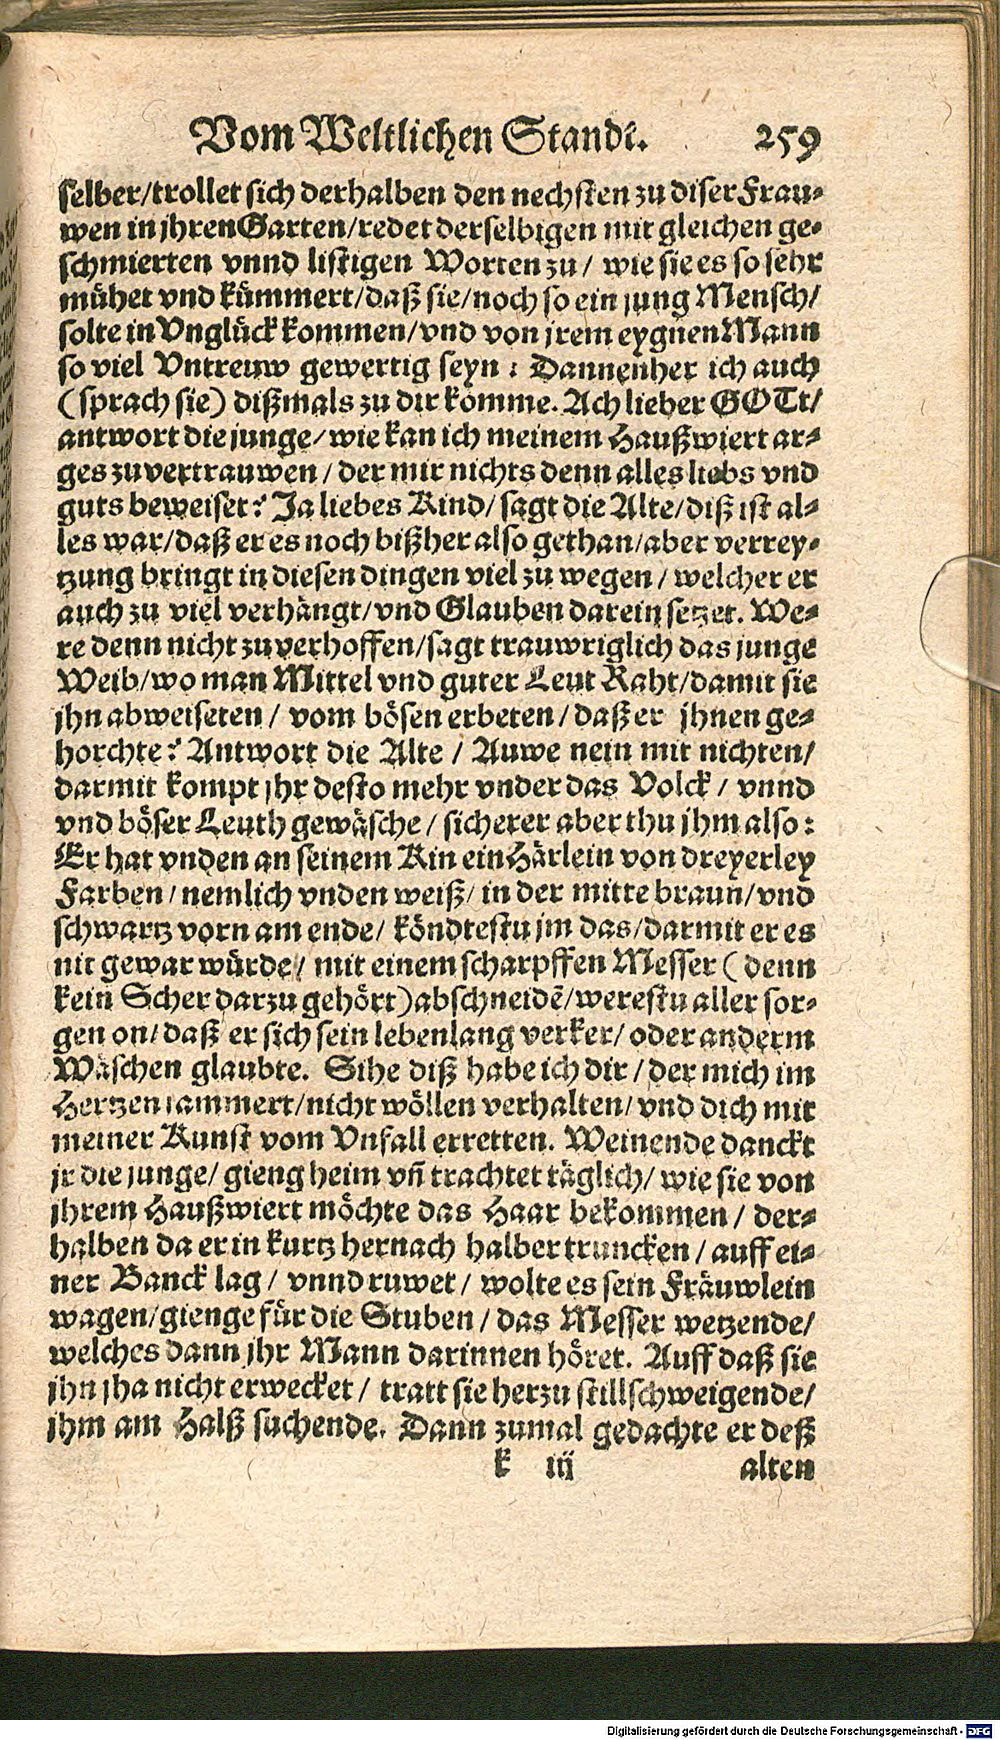 Vom Weltlichen Standt. 259
selber/trollet sich derhalben den nechsten zu diser Frau-
wen in jhren Garten/redet derselbigen mit gleichen ge-
schmierten vnnd listigen Worten zu/ wie sie es so sehr
mühet vnd kümmert/daß sie/noch so ein jung Mensch/
solte in Vnglück kommen/vnd von jrem eygnen Mann
so viel Vntreuw gewertig seyn: Dannenher ich auch
(sprach sie) dißmals zu dir komme. Ach lieber GOTt/
antwort die junge/wie kan ich meinem Haußwiert ar-
ges zuvertrauwen/der mir nichts denn alles liebs vnd
guts beweiset? Ja liebes Kind/sagt die Alte/diß ist al-
les war/daß er es noch bißher also gethan/aber verrey-
tzung bringt in diesen dingen viel zu wegen/welcher er
auch zu viel verhängt/vnd Glauben darein setzet. We-
re denn nicht zuverhoffen/sagt trauwriglich das junge
Weib/wo man Mittel vnd guter Leut Raht/damit sie
jhn abweiseten/ vom bösen erbeten/daß er jhnen ge-
horchte? Antwort die Alte/ Auwe nein mit nichten/
darmit kompt jhr desto mehr vnder das Volck/ vnnd
vnd böser Leuth gewäsche/ sicherer aber thu jhm also:
Er hat vnden an seinem Kin ein Härlein von dreyerley
Farben/nemlich vnden weiß/in der mitte braun/vnd
schwartz vorn am ende/ köndtestu jm das/darmit er es
nit gewar würde/ mit einem scharpffen Messer (denn
kein Scher darzu gehört) abschneidẽ/werestu aller sor-
gen on/daß er sich sein lebenlang verker/oder anderm
Wäschen glaubte. Sihe diß habe ich dir/der mich im
Hertzen jammert/nicht wöllen verhalten/vnd dich mit
meiner Kunst vom Vnfall erretten. Weinende danckt
jr die junge/gieng heim vñ trachtet täglich/wie sie von
jhrem Haußwiert möchte das Haar bekommen/ der-
halben da er in kurtz hernach halber truncken/auff ei-
ner Banck lag/ vnnd ruwet/ wolte es sein Fräuwlein
wagen/gienge für die Stuben/das Messer wetzende/
welches dann jhr Mann darinnen höret. Auff daß sie
jhn jha nicht erwecket/ tratt sie herzu stillschweigende/
jhm am Halß suchende. Dann zumal gedachte er deß
k iij alten
Digitalisierung gefördert durch die Deutsche Forschungsgemeinschaft - DFG